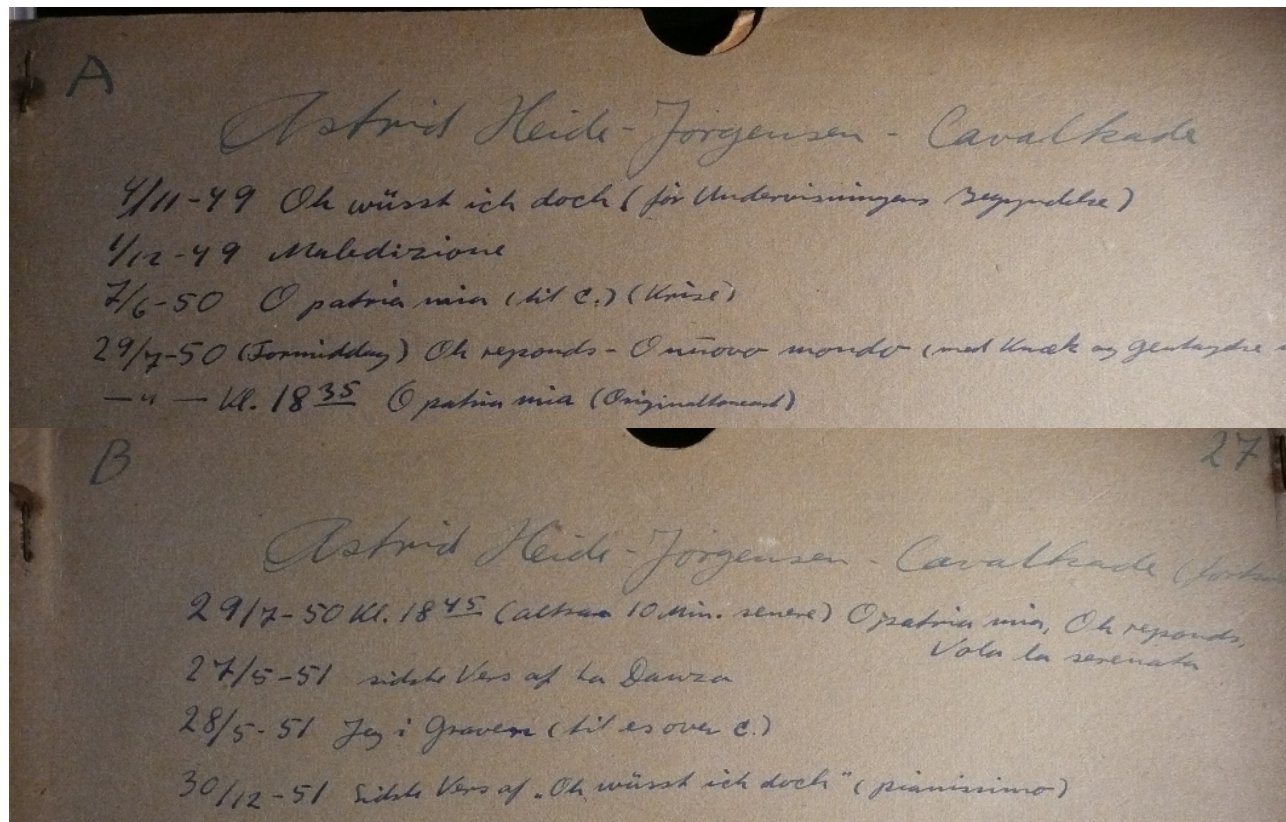 A
Astrid Heide-Jørgensen - Cavalkade
4/11-49 Oh wüsst ich doch (før Undervisningens Begyndelse)
1/12-49 Maledizione
7/6-50 O patria mia (til c.) (Krise)
29/7-50 (Formiddag) Oh reponds - O nuovo mondo (med Knæk og gentagelse
—"— Kl. 18 35 O patria mia (Originaltoneart)
B
27
Astrid Heide-Jørgensen - Cavalkade
29/7-50 Kl. 18 45 (altsaa 10 Min. senere) O patria mia, Oh reponds,
Vola la serenata
27/5-51 sidste Vers af La Danza
28/5-51 Jeg i Graven (til es over c.)
30/12-51 Sidste Vers af „Oh wüsst ich doch" (pianissimo)